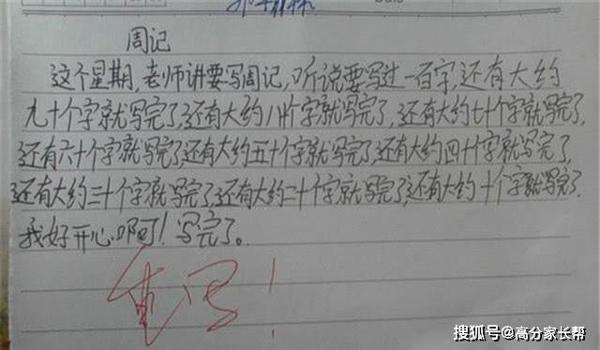 周记
这个星期,老师讲要写周记,听说要写过一百字,还有大约
九十个字就写完了,还有大约八十个字就写完了,还有大约七十个字就写完了,
还有六十个字就写完了还有大约五十个字就写完了,还有大约四十个字就写完了,
还有大约三十个字就写完了,还有大约二十个字就写完了,还有大约十个字就写完了.
我好开心啊!写完了。
重写!
搜狐号@高分家长帮